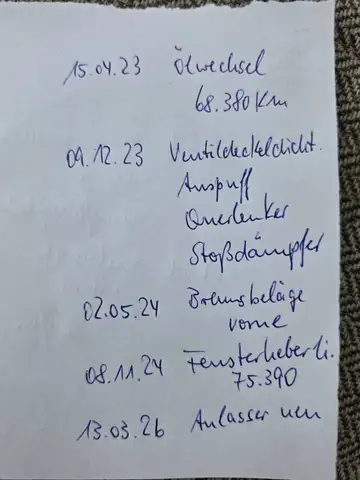 15.04.23 Ölwechsel
68.380 Km
09.12.23 Ventildeckeldicht.
Auspuff
Querlenker
Stoßdämpfer
02.05.24 Bremsbeläge
vorne
08.11.24 Fensterheber li.
75.390
13.03.26 Anlasser neu